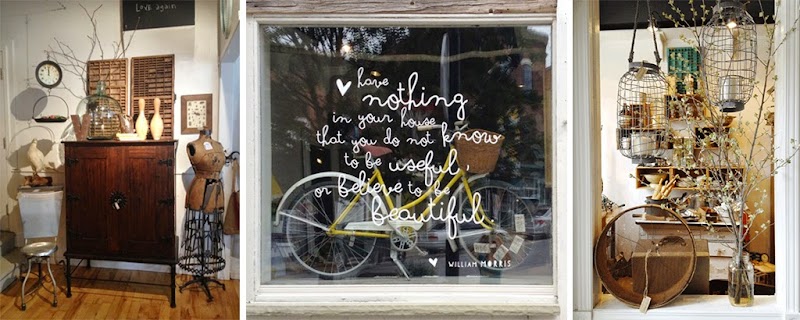 Love again
have
nothing
in your house
that you do not know
to be useful,
or believe to be
beautiful.
WILLIAM MORRIS